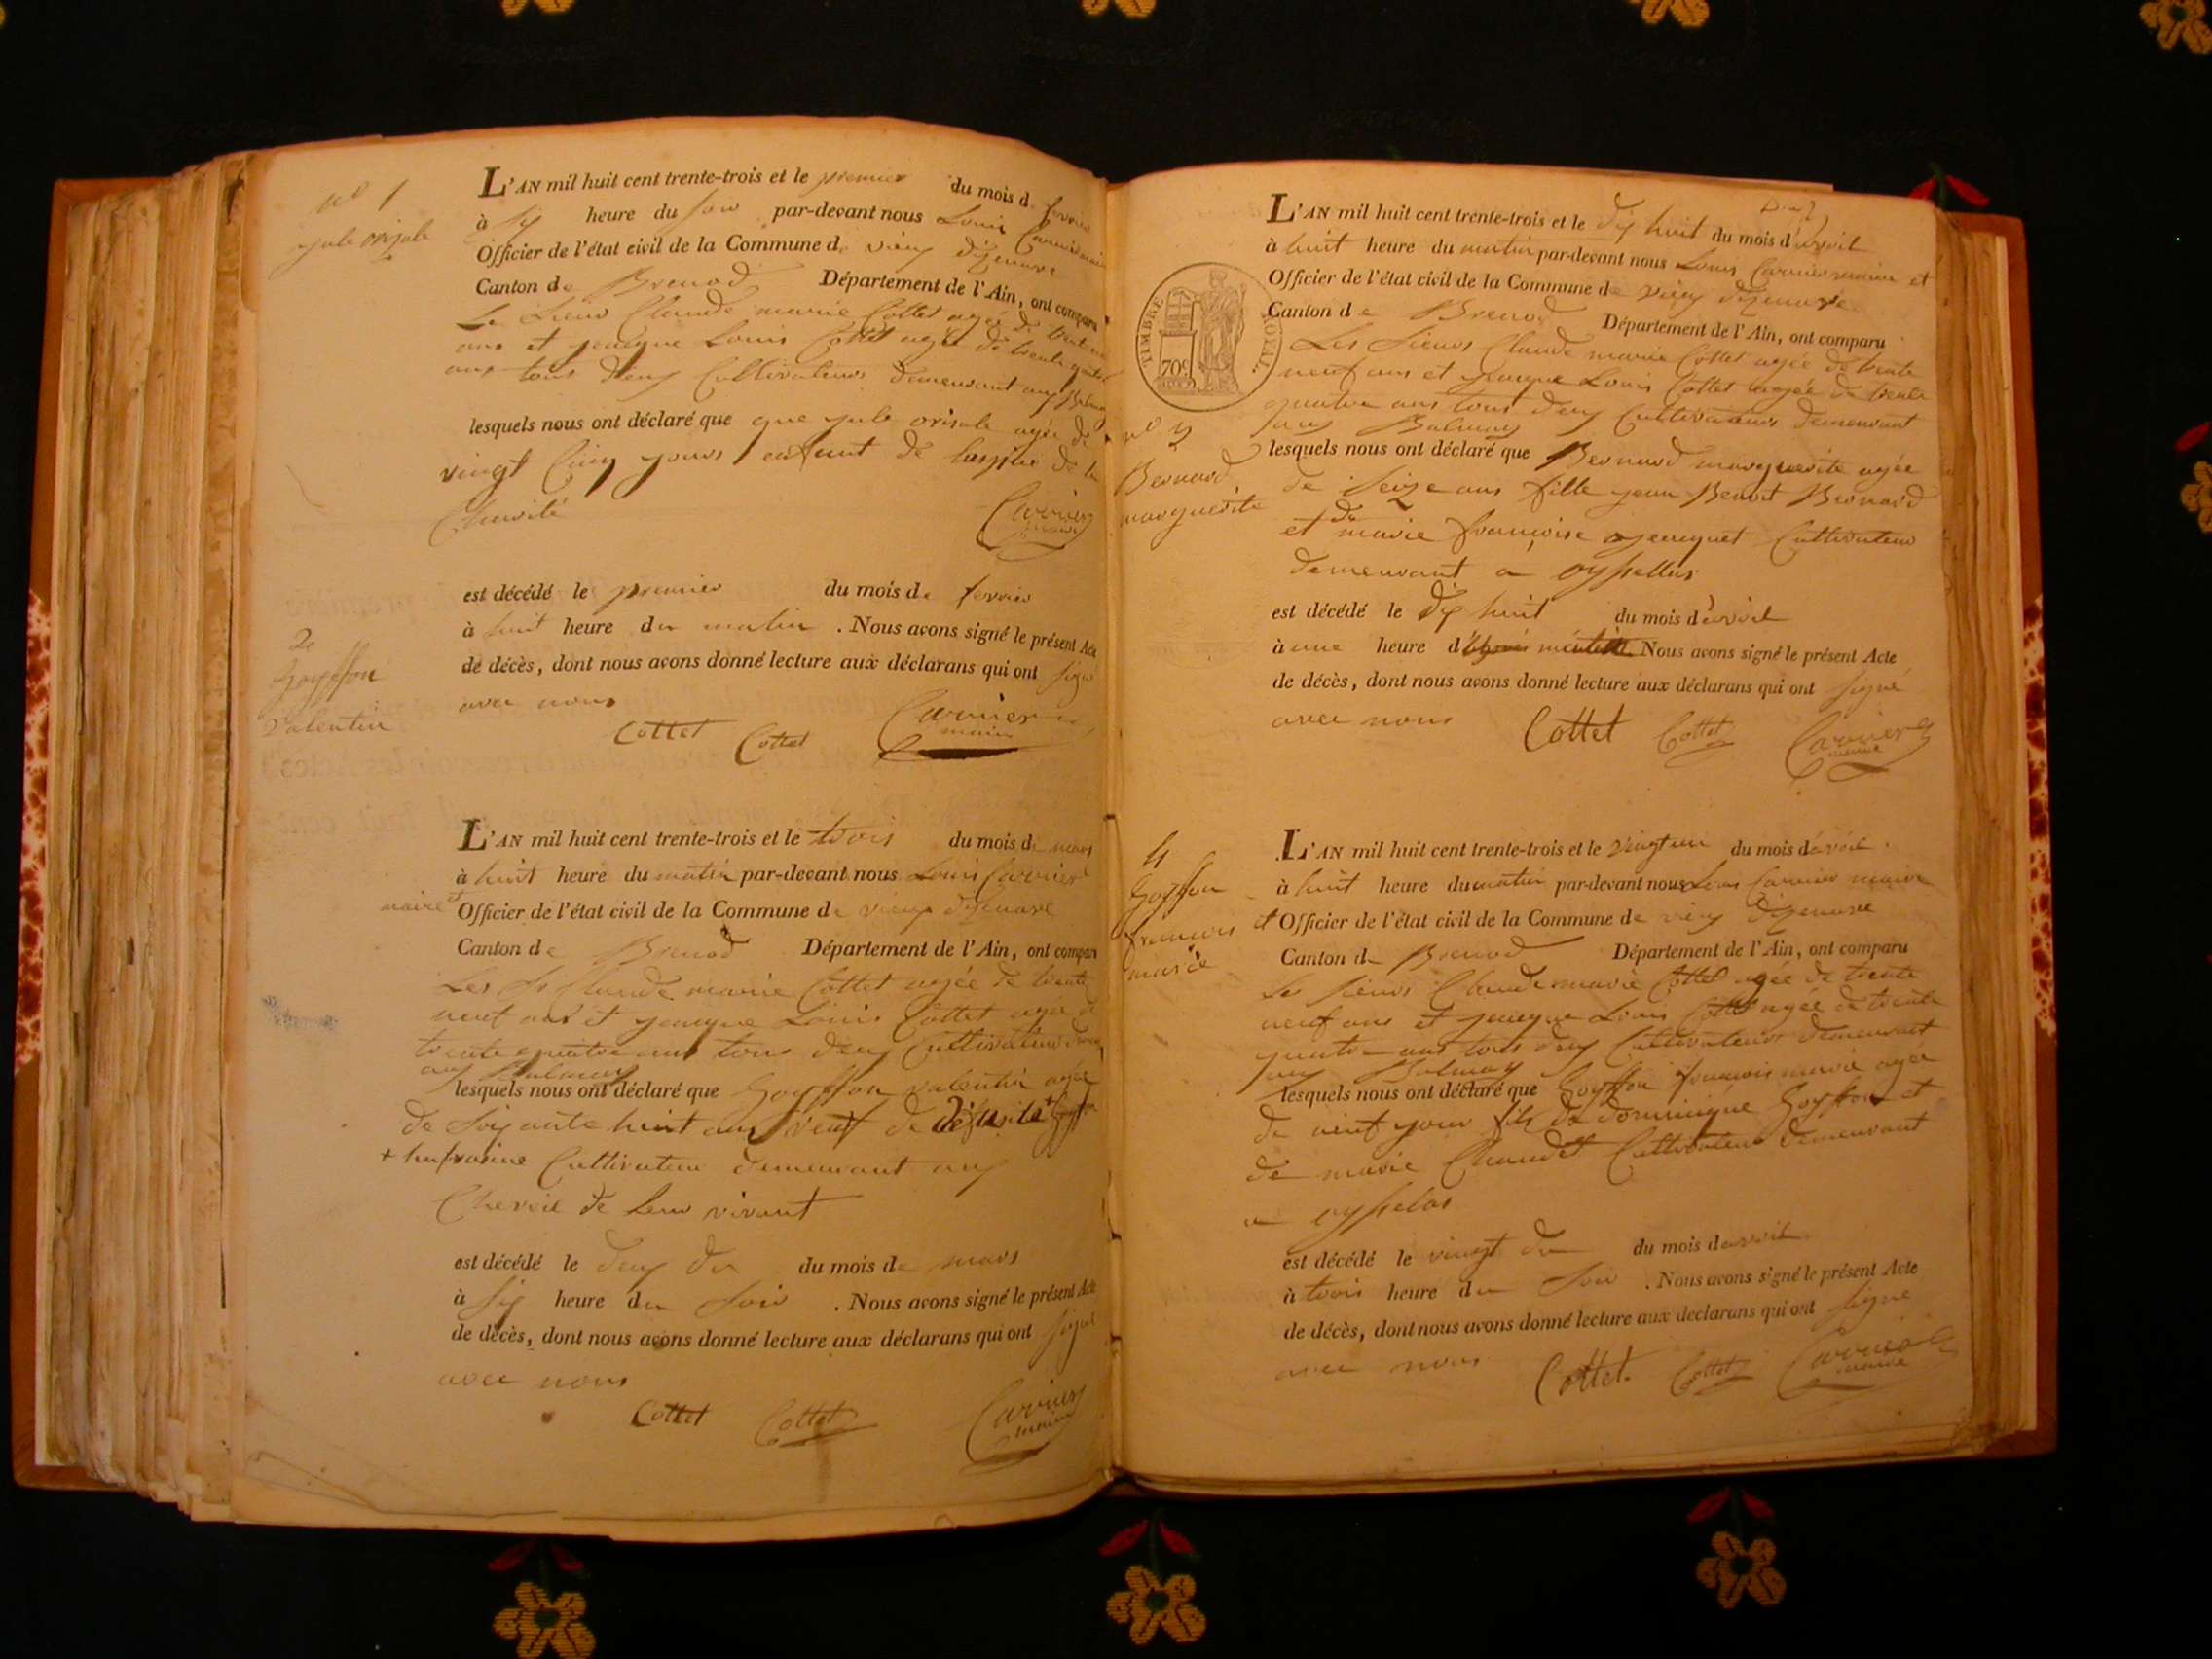 nº 1
jule orizale
L'AN mil huit cent trente-trois et le premier du mois de fevrier
à six heure du soir par-devant nous Louis Carrier maire
Officier de l'état civil de la Commune de vieux dizenave
Canton de Brenod Département de l'Ain, ont comparu
Le Sieur Claude marie Cottet agée de trente neuf
ans et jacque Louis Cottet agée de trente quatre
ans tous deux Cultivateurs demeurant aux Balmay
lesquels nous ont déclaré que que jule orisale agée de
vingt Cinq jours enfant de laspice de la
Charité
Carrier
maire
est décédé le premier du mois de fevrier
à huit heure du matin . Nous avons signé le présent Acte
de décès, dont nous avons donné lecture aux déclarans qui ont signé
avec nous
Cottet Cottet Carrier
maire
2
Goyffon
Valentin
L'AN mil huit cent trente-trois et le trois du mois de mars
à huit heure du matin par-devant nous Louis Carrier
maire et Officier de l'état civil de la Commune de vieux dizenave
Canton de Brenod Département de l'Ain, ont comparu
Les Sr Claude marie Cottet agée de trente
neuf ans et jacque Louis Cottet agée de
trente quatre ans tous deux Cultivateur
aux Balmay
lesquels nous ont déclaré que Goyffon valentin agée
de soixante huit ans veuf de
Cultivateur demeurant aux
de leur vivant
est décédé le deux du du mois de mars
à six heure du soir . Nous avons signé le présent Acte
de décès, dont nous avons donné lecture aux déclarans qui ont signé
avec nous
Cottet Cottet Carrier
maire
L'AN mil huit cent trente-trois et le dix huit du mois d'avril
à huit heure du matin par-devant nous Louis Carrier maire et
Officier de l'état civil de la Commune de vieux dizenave
Canton de Brenod Département de l'Ain, ont comparu
TIMBRE ROYAL
70c
Les Sieurs Claude marie Cottet agée de trente
neuf ans et jacque Louis Cottet agée de trente
quatre ans tous deux Cultivateurs demeurant
aux Balmay
nº 3
Bernard
marguerite
lesquels nous ont déclaré que Bernard marguerite agée
de seize ans fille jean Benoit Bernard
et de marie françoise jacquet Cultivateur
demeurant a oyssellas
est décédé le dix huit du mois d'avril
à une heure d matin Nous avons signé le présent Acte
de décès, dont nous avons donné lecture aux déclarans qui ont signé
avec nous
Cottet Cottet Carrier
maire
4
Goyffon
francois
marie
L'AN mil huit cent trente-trois et le vingt un du mois d'avril
à huit heure du matin par-devant nous Louis Carrier maire
et Officier de l'état civil de la Commune de vieux dizenave
Canton de Brenod Département de l'Ain, ont comparu
Les sieurs Claude marie Cottet agée de trente
neuf ans et jacque Louis Cottet agée de trente
quatre ans tous deux Cultivateurs demeurant
aux Balmay
lesquels nous ont déclaré que Goyffon francois marie agée
de neuf jour fils de dominique Goyffon et
de marie Chaudet Cultivateur demeurant
a oysselas
est décédé le vingt du du mois d avril
à trois heure du soir . Nous avons signé le présent Acte
de décès, dont nous avons donné lecture aux déclarans qui ont signé
avec nous
Cottet Cottet Carrier
maire